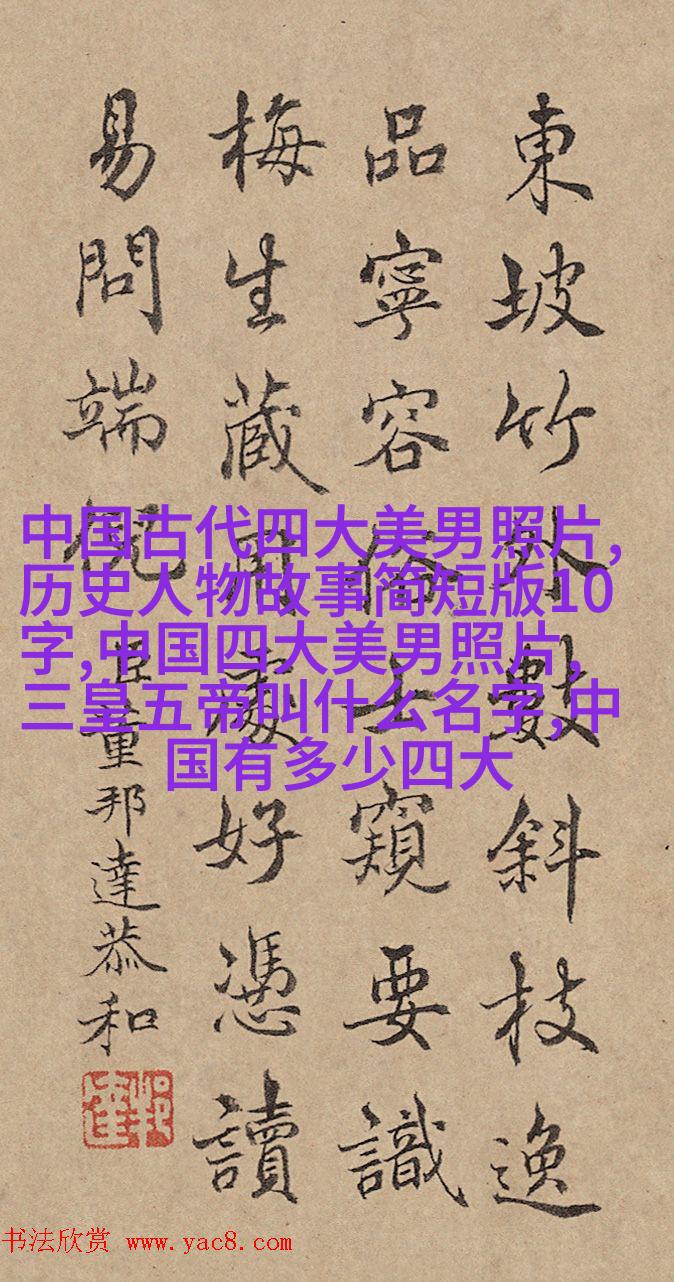 東坡竹外數斜枝逸
品寧容俗士窺要識
梅生藏用處好憑讀
易問端倪
臣董邦達恭和
中国古代四大美男照片,
历史人物故事简短版10
字,中国四大美男照片,
三皇五帝叫什么名字,中
国有多少四大
书法欣赏 www.yac8.com